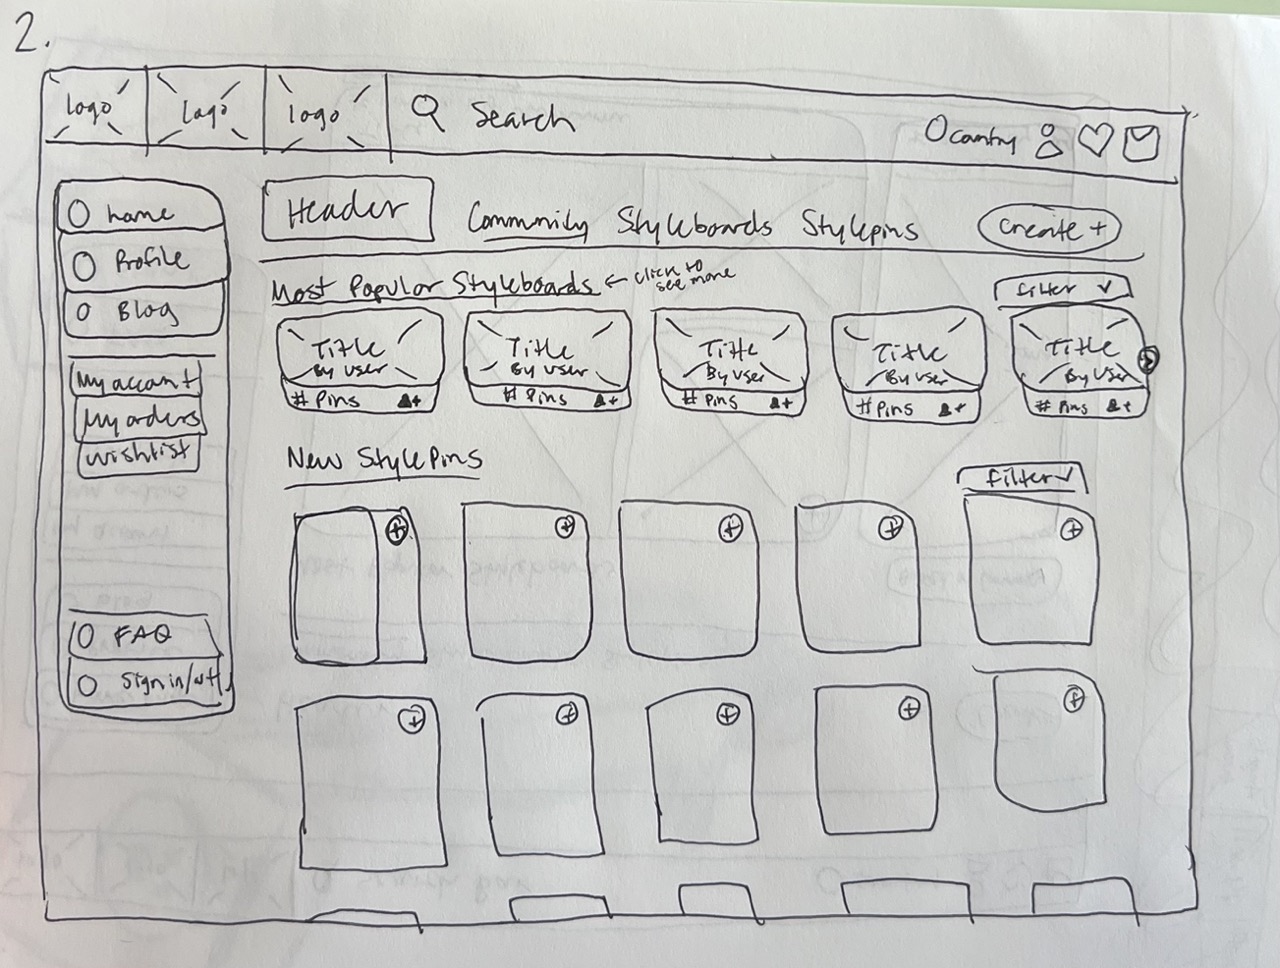 2.
logo logo logo Search country
home
Profile
Blog
My account
My orders
Wishlist
FAQ
Sign in/out
Header Community Styleboards Stylepins Create +
Most Popular Styleboards ← click to
see more
Filter
Title Title Title Title Title
By User By User By User By User By User
# Pins # Pins # Pins # Pins # Pins
New StylePins
Filter